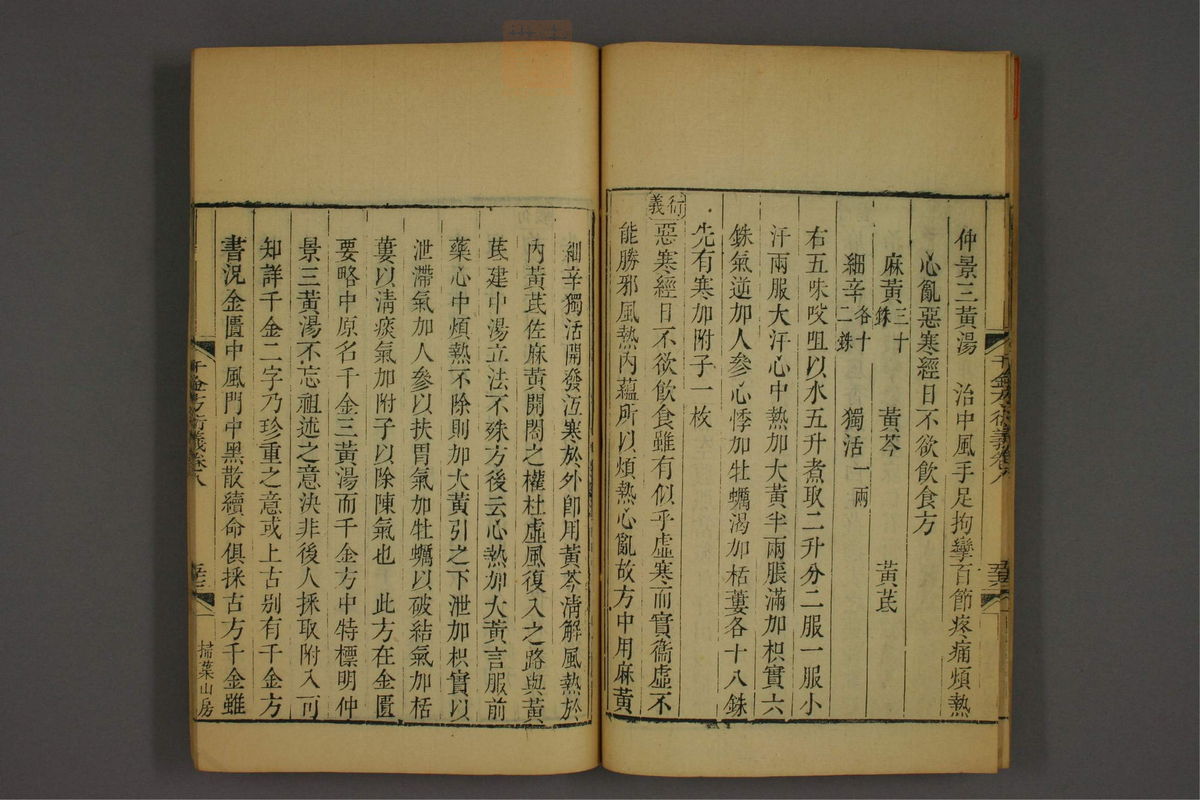 仲景三黃湯 治中風手足拘攣百節疼痛煩熱
心亂惡寒經日不欲飲食方
麻黃三十銖 黃芩 黃芪
細辛各十二銖 獨活一兩
右五味㕮咀以水五升煮取二升分二服一服小
汗兩服大汗心中熱加大黃半兩脹滿加枳實六
銖氣逆加人參心悸加牡蠣渴加栝蔞各十八銖
先有寒加附子一枚
衍義
惡寒經日不欲飲食雖有似乎虛寒而實衞虛不
能勝邪風熱內蘊所以煩熱心亂故方中用麻黃
千金方衍義卷八
細辛獨活開發沍寒於外卽用黃芩淸解風熱於
內黃芪佐麻黃開閤之權杜虛風復入之路與黃
芪建中湯立法不殊方後云心熱加大黃言服前
藥心中煩熱不除則加大黃引之下泄加枳實以
泄滯氣加人參以扶胃氣加牡蠣以破結氣加栝
蔞以淸痰氣加附子以除陳氣也 此方在金匱
要略中原名千金三黃湯而千金方中特標明仲
景三黃湯不忘祖述之意決非後人採取附入可
知詳千金二字乃珍重之意或上古別有千金方
書況金匱中風門中黑散續命俱採古方千金雖
千金方衍義卷八
掃葉山房